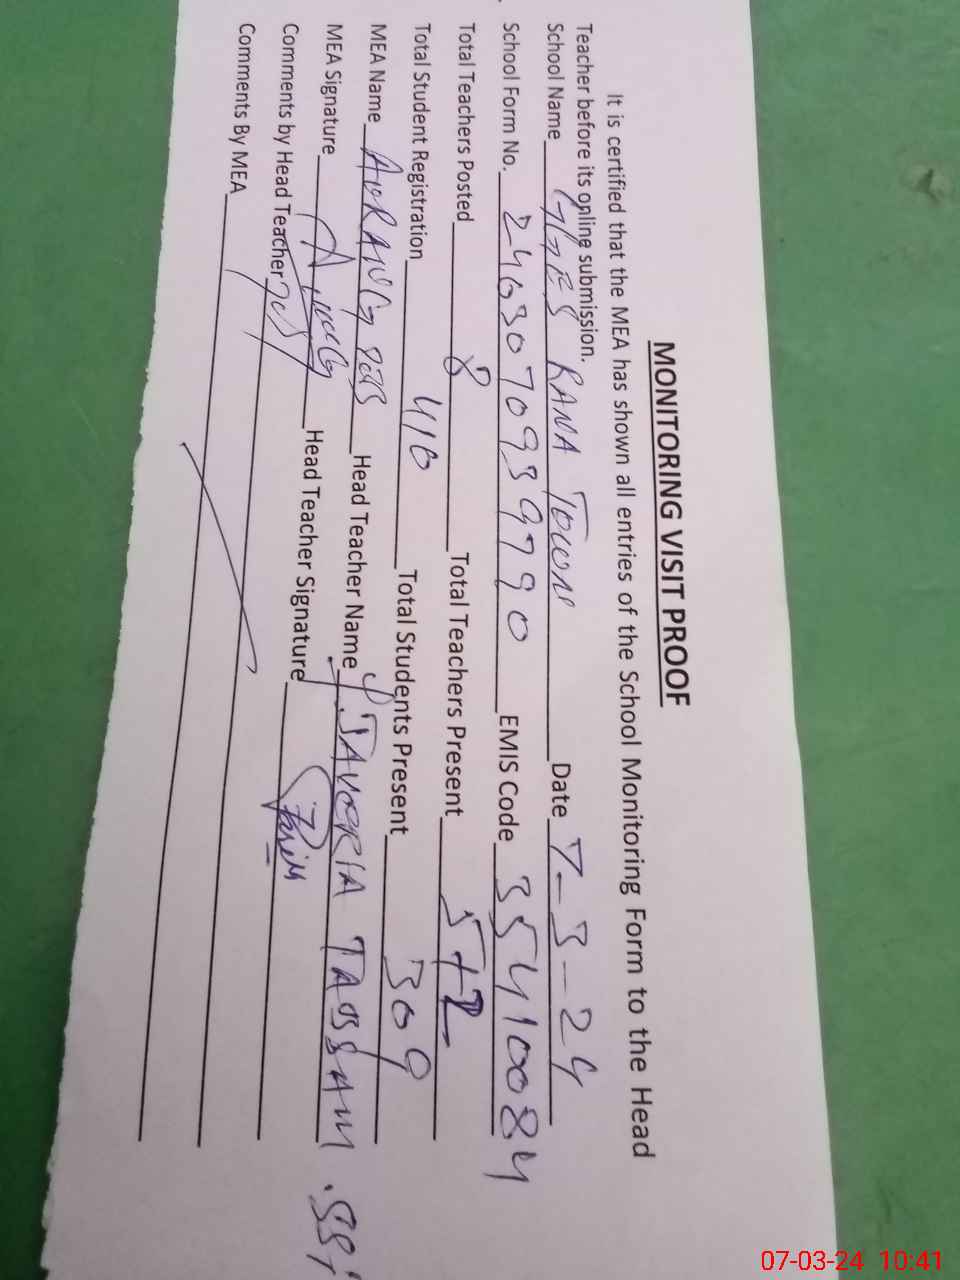 MONITORING VISIT PROOF
It is certified that the MEA has shown all entries of the School Monitoring Form to the Head
Teacher before its online submission.
School Name GGES RANA TOWN Date 7-3-24
School Form No. 24030709399790 EMIS Code 35410084
Total Teachers Posted 8 Total Teachers Present 5+2
Total Student Registration 410 Total Students Present 309
MEA Name Head Teacher Name JAVERIA
MEA Signature Head Teacher Signature
Comments by Head Teacher
Comments By MEA
07-03-24 10:41